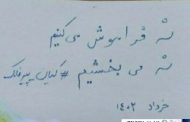 نه فراموش می‌کنیم
نه می‌بخشیم #کیان_پیرفلک
خرداد ۱۴۰۲